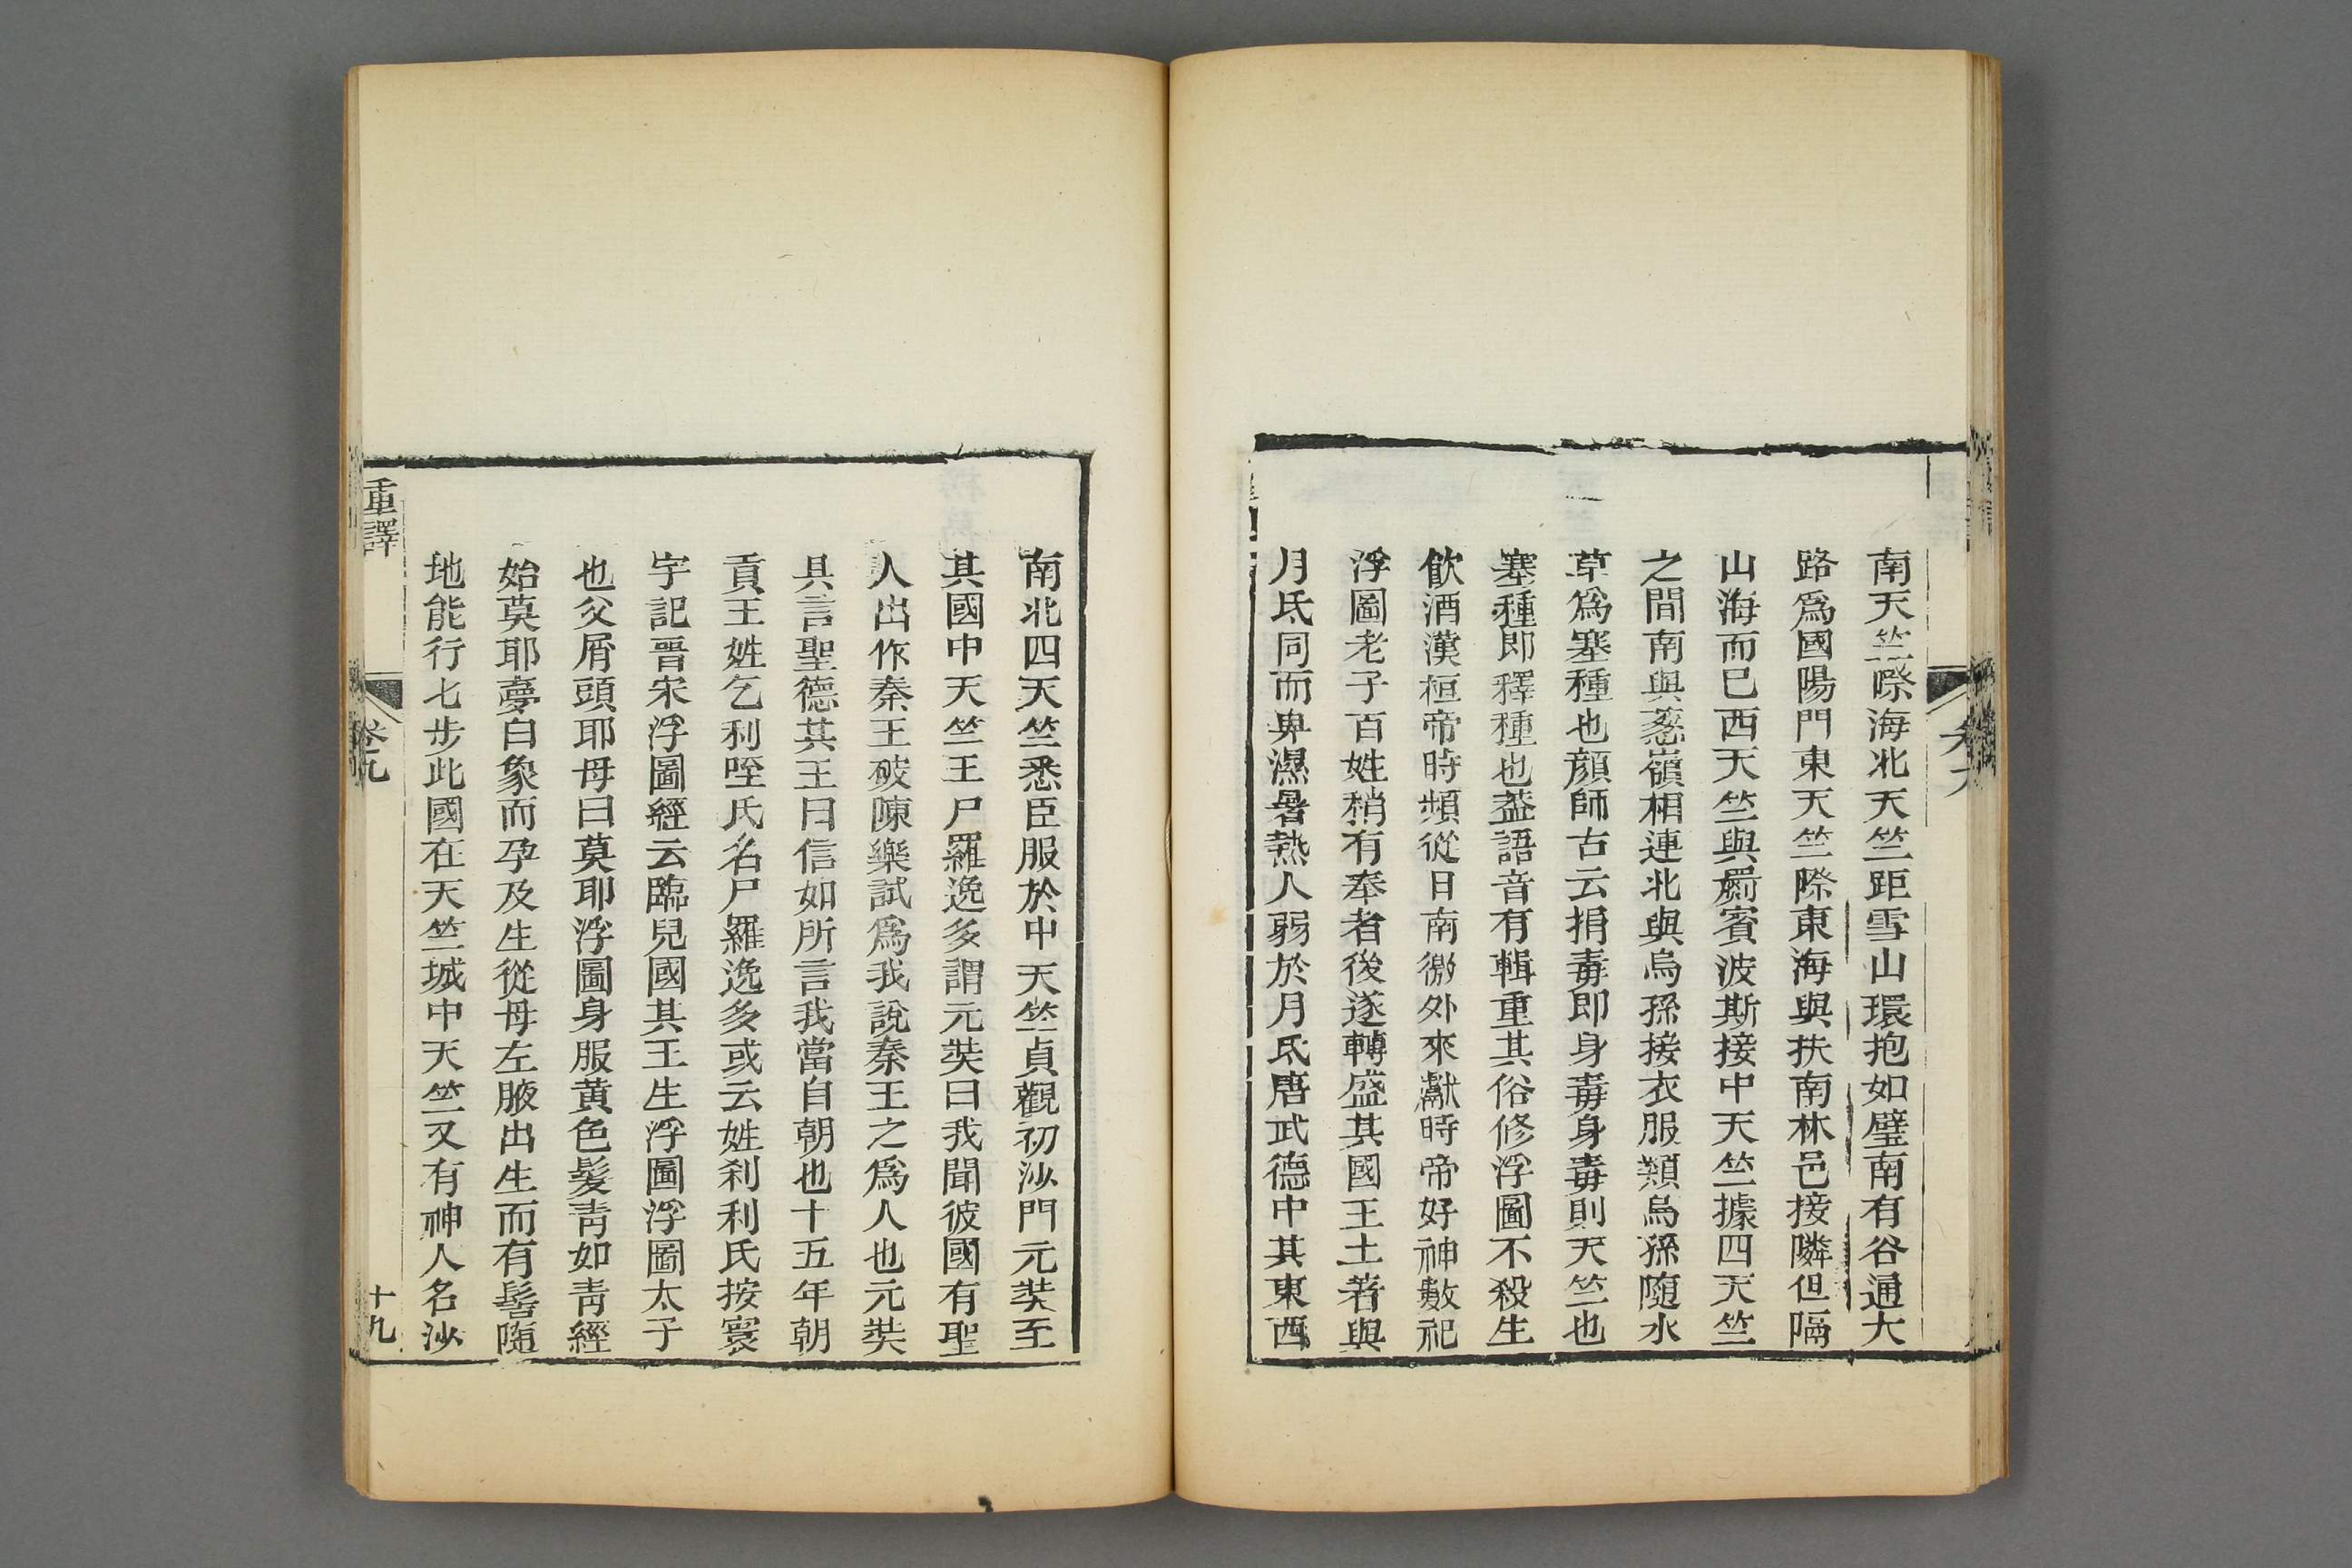 南天竺際海北天竺距雪山環抱如璧南有谷通大
路爲國陽門東天竺際東海與扶南林邑接隣但隔
山海而巳西天竺與罽賓波斯接中天竺據四天竺
之間南與葱嶺相連北與烏孫接衣服類烏孫隨水
草爲塞種也顔師古云捐毒即身毒身毒則天竺也
塞種即釋種也葢語音有輯重其俗修浮圖不殺生
飲酒漢桓帝時頻從日南徼外來獻時帝好神數祀
浮圖老子百姓稍有奉者後遂轉盛其國王土著與
月氏同而卑濕暑熱人弱於月氏唐武德中其東西
南北四天竺悉臣服於中天竺貞觀初沙門元奘至
其國中天竺王尸羅逸多謂元奘曰我聞彼國有聖
人出作秦王破陳樂試爲我說秦王之爲人也元奘
具言聖德其王曰信如所言我當自朝也十五年朝
貢王姓乞利咥氏名尸羅逸多或云姓刹利氏按寰
宇記晉宋浮圖經云臨兒國其王生浮圖浮圖太子
也父屑頭耶母曰莫耶浮圖身服黃色髮靑如靑經
始莫耶夢白象而孕及生從母左腋出生而有髻隨
地能行七步此國在天竺城中天竺又有神人名沙
重譯
卷九
十九